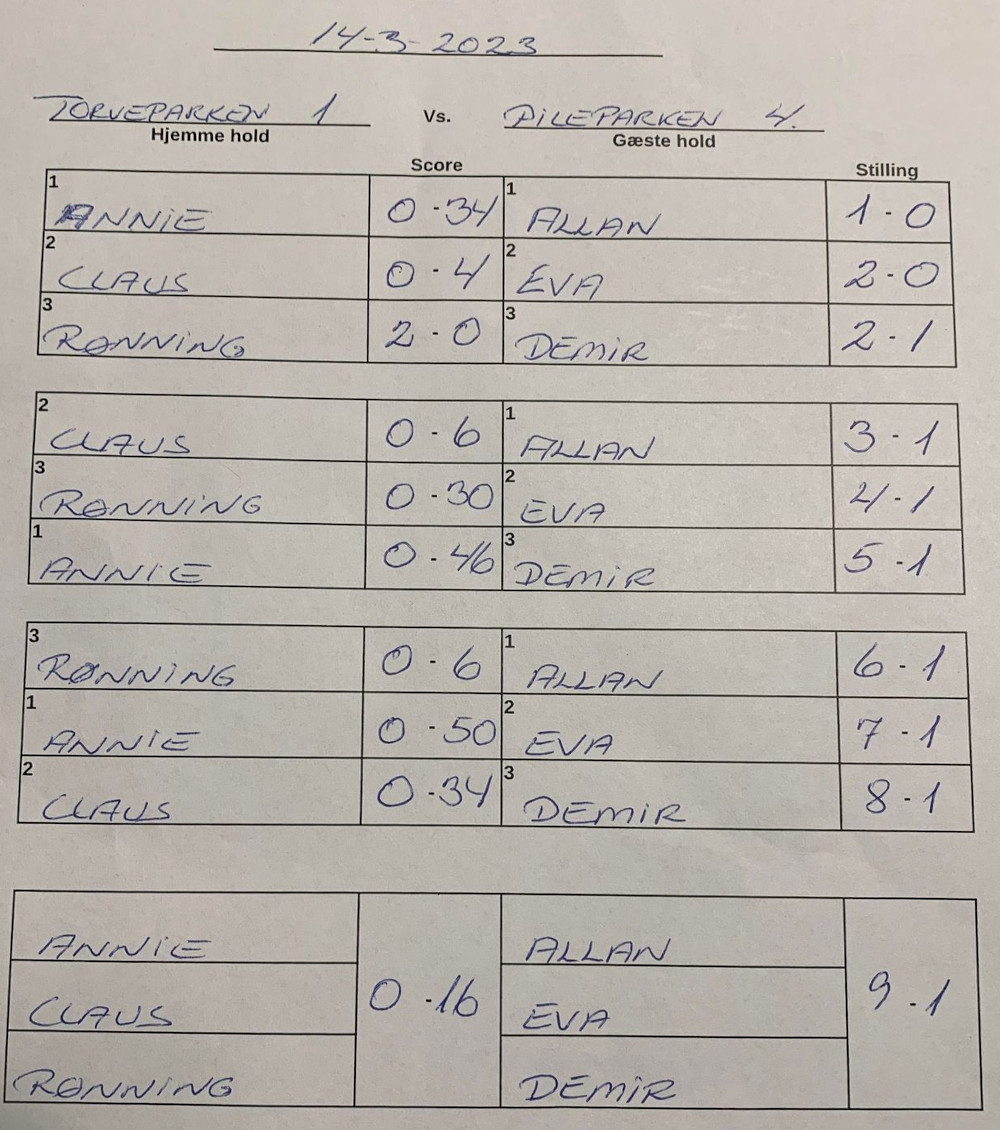 14-3-2023
TORVEPARKEN 1 Vs. PILEPARKEN 4.
Hjemme hold Gæste hold
Score Stilling
1 ANNIE 0-34 1 ALLAN 1-0
2 CLAUS 0-4 2 EVA 2-0
3 RØNNING 2-0 3 DEMIR 2-1
2 CLAUS 0-6 1 ALLAN 3-1
3 RØNNING 0-30 2 EVA 4-1
1 ANNIE 0-46 3 DEMIR 5-1
3 RØNNING 0-6 1 ALLAN 6-1
1 ANNIE 0-50 2 EVA 7-1
2 CLAUS 0-34 3 DEMIR 8-1
ANNIE ALLAN
CLAUS 0-16 EVA 9-1
RØNNING DEMIR